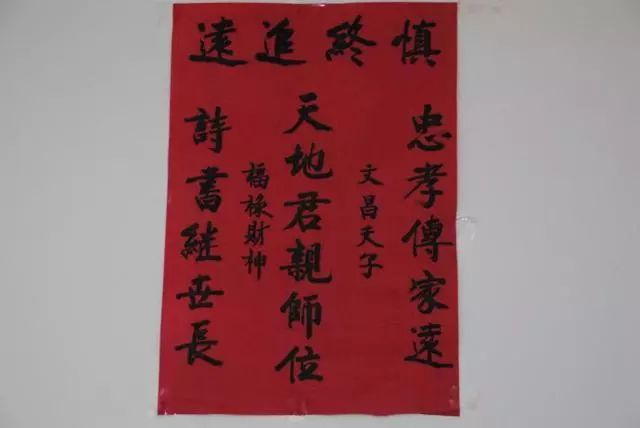 慎終追遠
忠孝傳家遠
文昌天子
天地君親師位
福祿財神
詩書繼世長